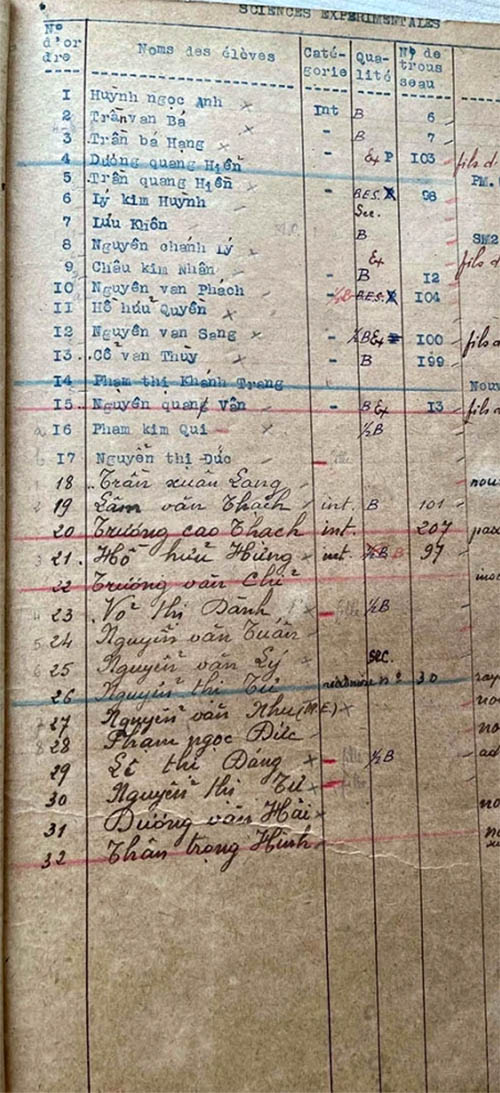 SCIENCES EXPERIMENTALES
N° d'ordre Noms des élèves Catégorie Qualité N° de trousseau
1 Huỳnh ngọc Anh Int B 6
2 Trần van Bá - B 7
3 Trần bá Hang - Ex P 103 fils d
4 Dương quang Hiền PM.
5 Trần quang Hiền - B.E.S. 98
6 Lý kim Huỳnh Sec.
7 Lưu Khôn B SM2
8 Nguyễn chánh Lý Ex fils d
9 Châu kim Nhân - B 12
10 Nguyễn van Phách - ½B B.E.S. 104
11 Hồ hữu Quyền
12 Nguyễn van Sang - ½B Ex 100 fils d
13 Cổ van Thùy - B 199
14 Phạm thi Khánh Trang Nouv
15 Nguyễn quang Vân - B Ex 13 fils d
16 Pham kim Qui ½B
17 Nguyễn thị Đức - fille
18 Trần xuân Lang nouv
19 Lâm văn Thạch int. B 101
20 Trương cao Thạch int. 207
21 Hồ hữu Hùng int. ½B 97
22 Trương văn Chỉ
23 Võ thị Dành - fille ½B
24 Nguyễn văn Tuấn
25 Nguyễn văn Lý sec.
26 Nguyễn thị Tư n° 30 ray
27 Nguyễn văn Như (M.E) no
28 Phạm ngọc Đức no
29 Lê thị Dáng - fille ½B ad
30 Nguyễn thị Tư - fille
31 Dương văn Hải no
32 Thân trọng Hinh